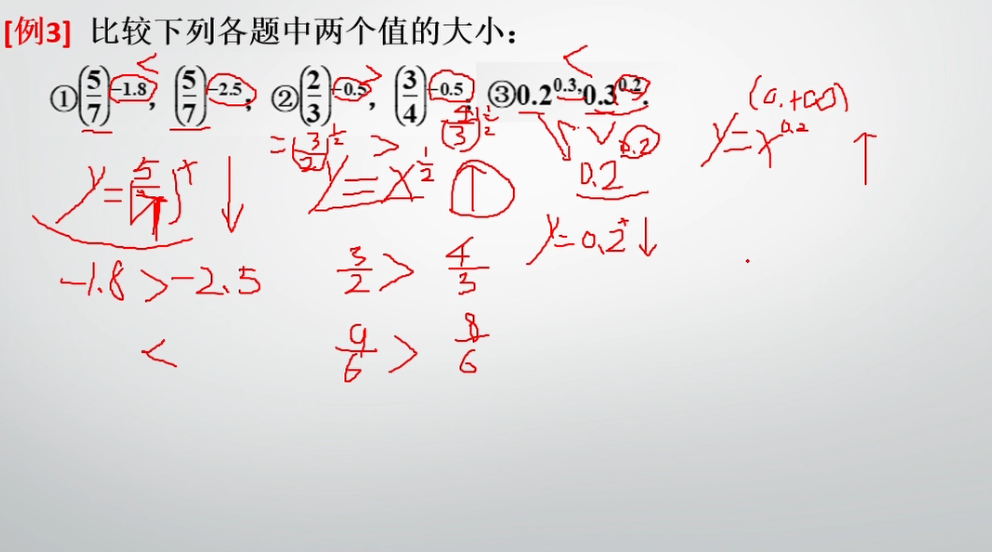 [例3] 比较下列各题中两个值的大小：
< > <
①(5/7)^-1.8, (5/7)^-2.5; ②(2/3)^-0.5, (3/4)^-0.5; ③0.2^0.3, 0.3^0.2.
(0.+∞)
=(3/2)^1/2 > (4/3)^1/2
y=x^0.2 ↑
y=(5/7)^x ↓ y=x^1/2 ↑ 0.2^0.2
y=0.2^x ↓
-1.8>-2.5 3/2 > 4/3
< 9/6 > 8/6